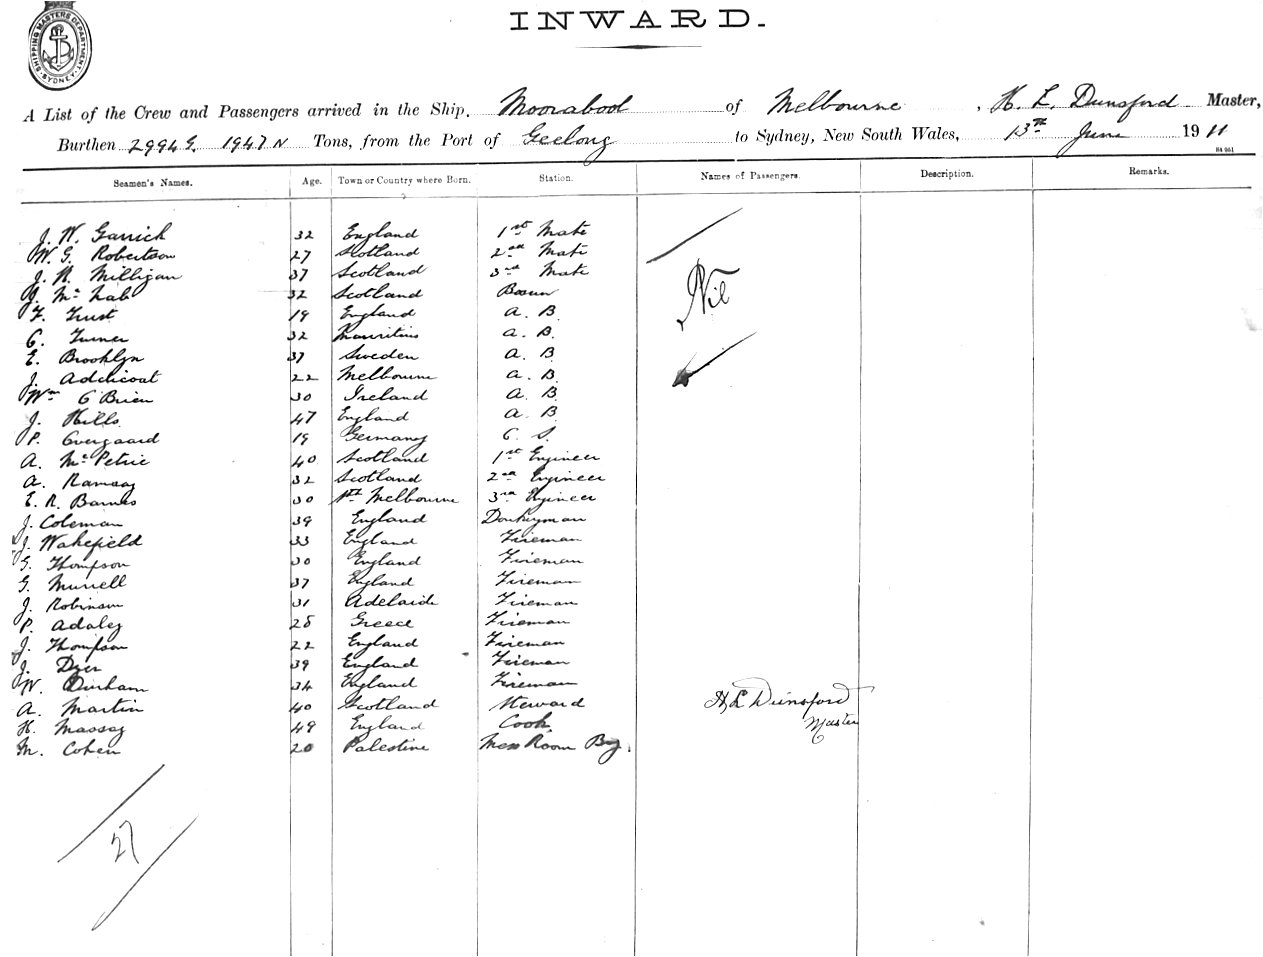 INWARD.
SHIPPING MASTERS DEPARTMENT SYDNEY
A List of the Crew and Passengers arrived in the Ship, Moorabool of Melbourne, H. L. Dunsford Master,
Burthen 2994 G. 1947 N Tons, from the Port of Geelong to Sydney, New South Wales, 13th June 1911
Seamen's Names. Age. Town or Country where Born. Station. Names of Passengers. Description. Remarks.
J. W. Garrick 32 England 1st Mate
W. G. Robertson 27 Scotland 2nd Mate
J. H. Milligan 37 Scotland 3rd Mate
J. Mc Nab 32 Scotland Bosun
Nil
F. Trust 19 England A. B.
C. Turner 32 Mauritius A. B.
E. Brooklyn 37 Sweden A. B.
J. Addicoat 22 Melbourne A. B.
Wm O'Brien 30 Ireland A. B.
J. Hills 47 England A. B.
P. Overgaard 19 Germany O. S.
A. Mc Petrie 40 Scotland 1st Engineer
A. Ramsay 32 Scotland 2nd Engineer
E. R. Barnes 30 Nth Melbourne 3rd Engineer
J. Coleman 39 England Donkeyman
J. Wakefield 33 England Fireman
G. Thompson 30 England Fireman
G. Murrell 37 England Fireman
J. Robinson 31 Adelaide Fireman
P. Adaley 28 Greece Fireman
J. Thompson 22 England Fireman
J. Dyer 39 England Fireman
W. Durham 34 England Fireman
A. Martin 40 Scotland Steward
H L Dunsford
H. Massay 49 England Cook
Master
M. Cohen 20 Palestine Mess Room Boy.
27